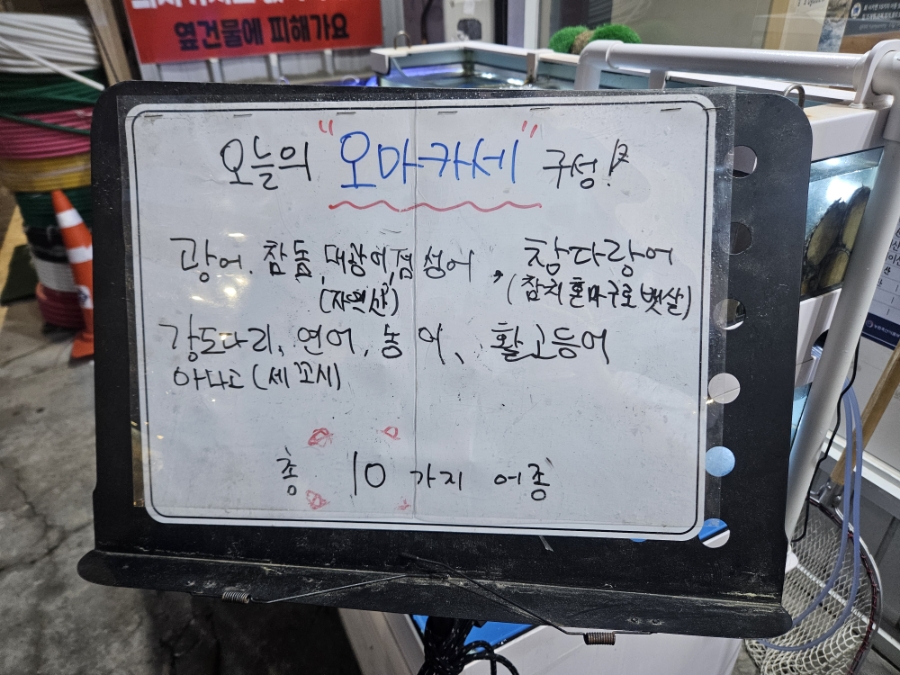 옆건물에 피해가요
오늘의 "오마카세" 구성!
광어. 참돔, 대광어, 점성어, 참다랑어
(자연산) (참치 혼마구로 뱃살)
강도다리, 연어, 농어, 활고등어
아나고(세꼬시)
총 10가지 어종